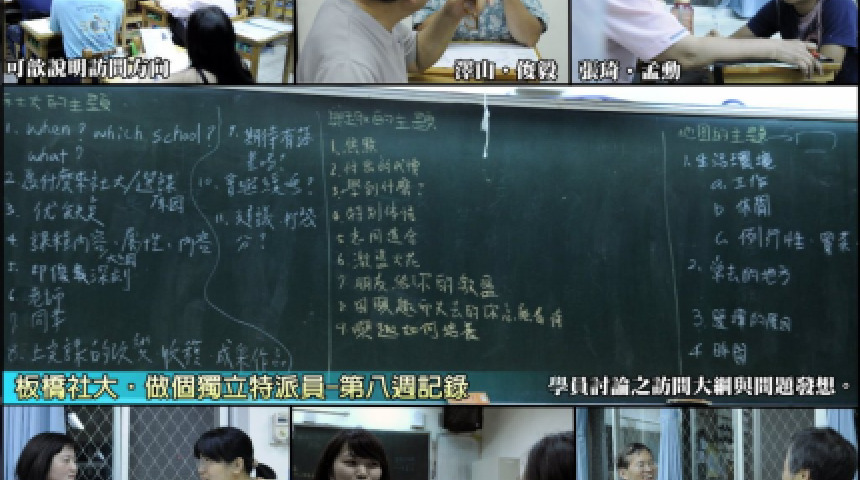 可歆說明訪問方向
澤山・俊毅
張琦・孟勳
社大的主題
1. when? which school?
what?
2. 為什麼來社大/選課
原因
3. 優缺點
4. 課程內容、屬性、內容
5. 印象最深刻
6. 老師
7. 同學
8. 上完課的改變 收穫 成果作品
9. 期待有誰
10. 會繼續嗎?
11. 建議 打幾
分?
興趣的主題
1. 優點
2. 付出的代價
3. 學到什麼?
4. 特別事情
5. 志同道合
6. 激盪火花
7. 朋友給你的教
9. 興趣如何培養
地圖的主題
1. 生活環境
a. 工作
b. 休閒
c. 例行性、買菜
2. 常去的地方
3. 選擇的原因
4. 時間
板橋社大・做個獨立特派員-第八週記錄
學員討論之訪問大綱與問題發想。